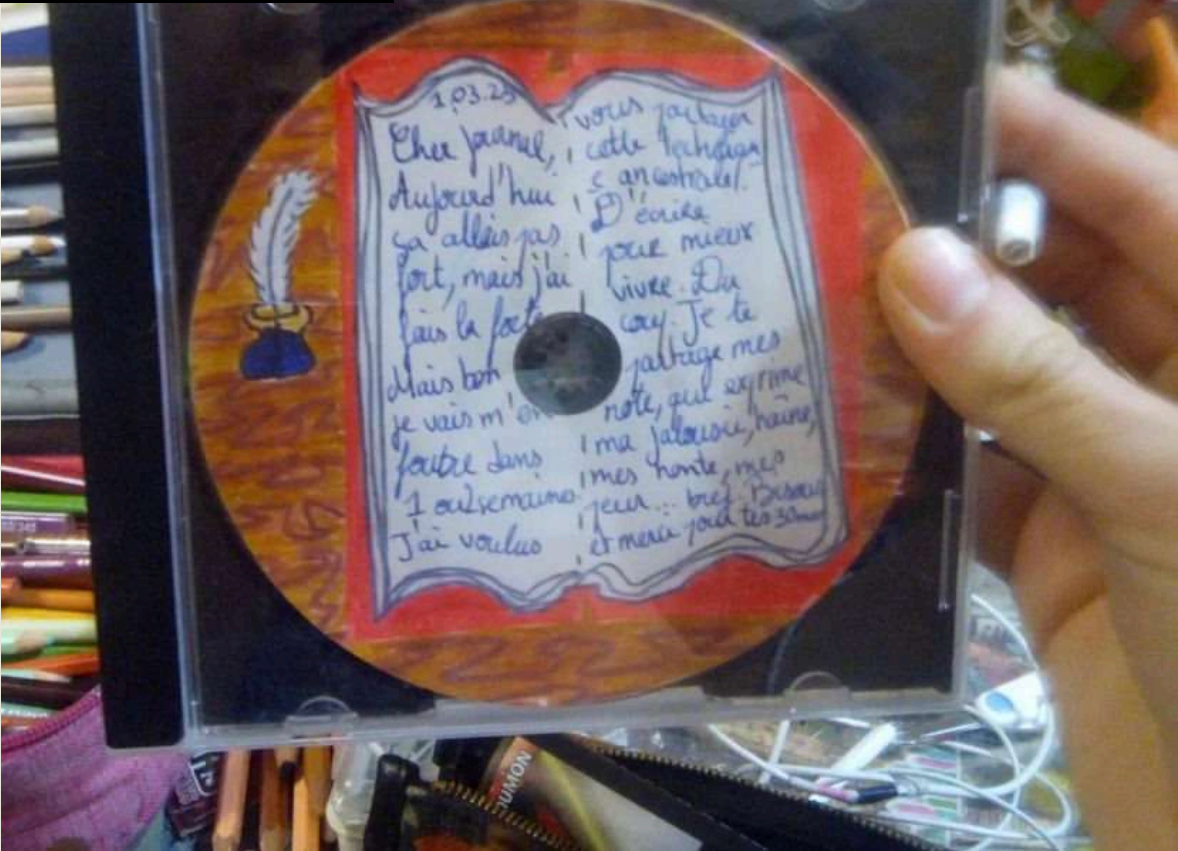 1.03.25
Cher journal,
Aujourd'hui
ça allais pas
fort, mais j'ai
fais la
Mais bon
je vais m'en
foutre dans
1 ou 2 semaines.
J'ai voulus
vous partager
cette
ancestrale.
D'écrire
pour mieux
vivre. Du
coup. Je te
partage mes
note, qui exprime
ma jalousie, haîne,
mes honte, mes
peur... bref. Bisous
et merci pour tes 30
OUMON